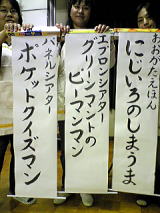 おおがたえほん
にじいろのしまうま
エプロンシアター
グリーンマントの
ピーマンマン
パネルシアター
ポケットクイズマン